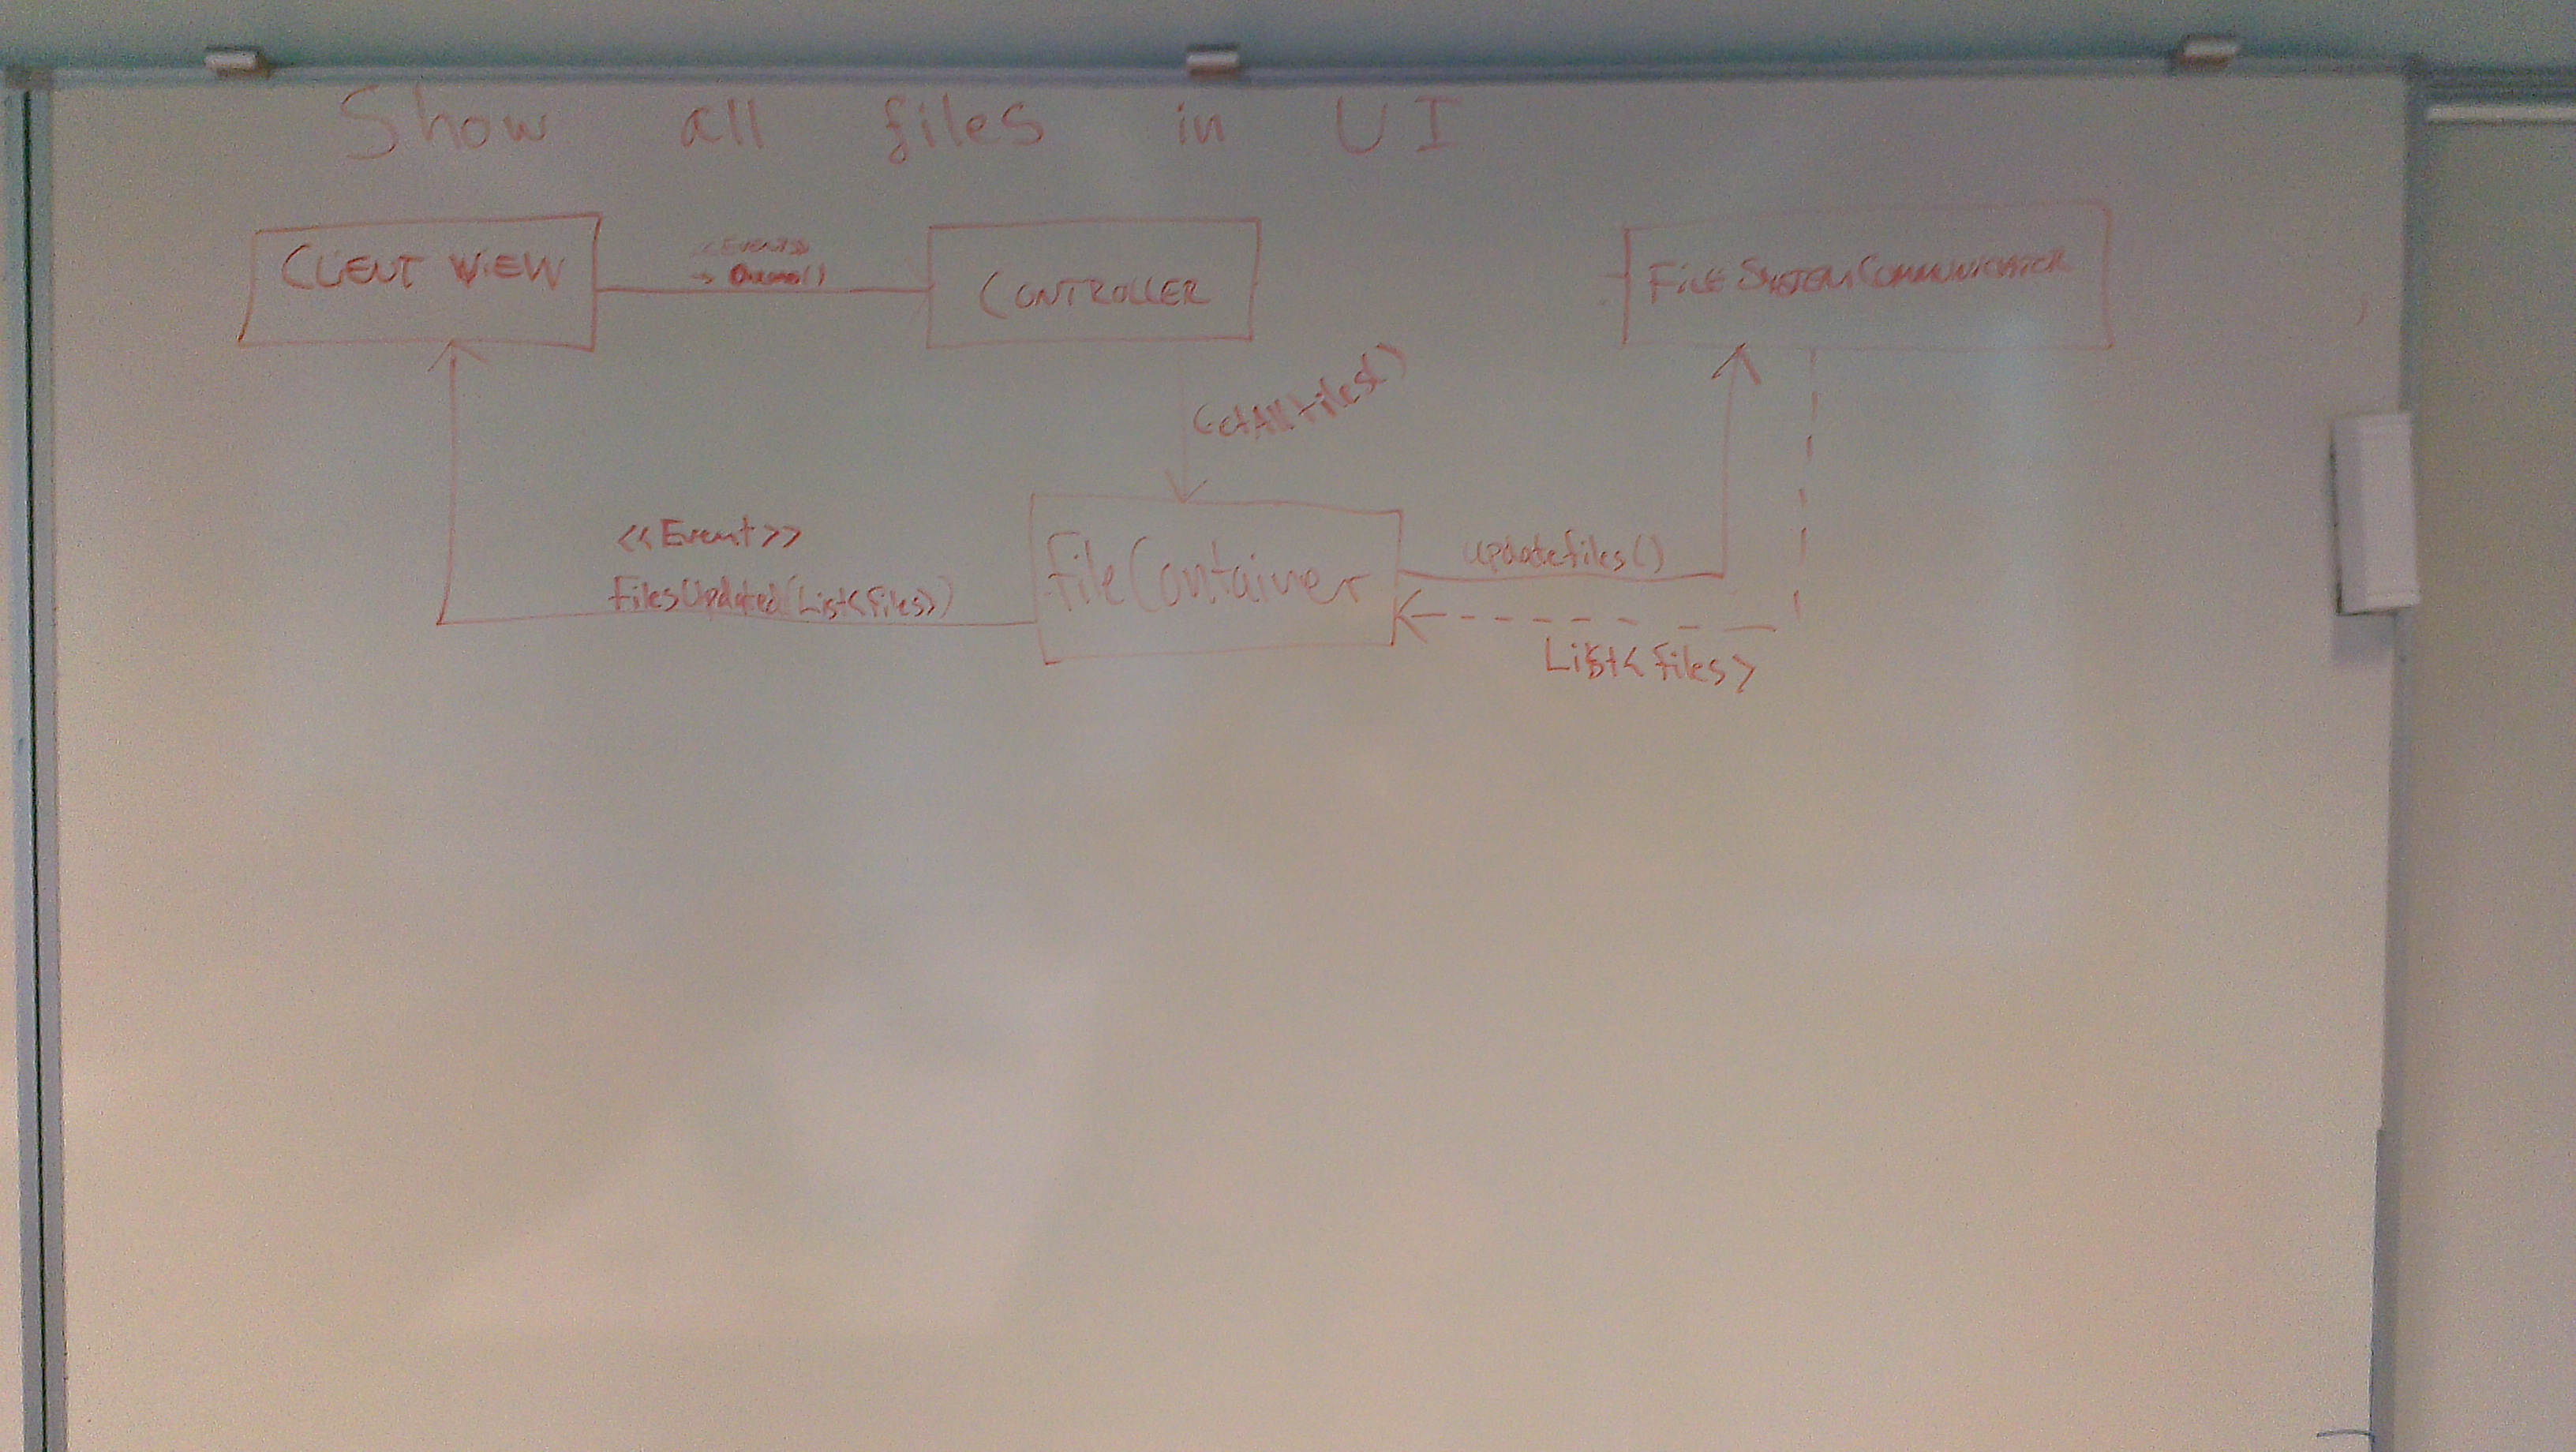 Show all files in UI
CLIENT VIEW
<<EVENT>>
CONTROLLER
FILESYSTEMCOMMUNICATOR
GetAllFiles()
<<Event>>
FilesUpdated(List<files>)
fileContainer
updatefiles()
List<files>